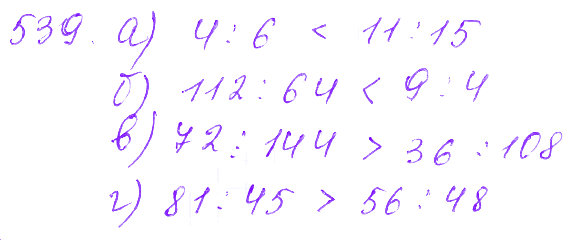 539. а) 4 : 6 < 11 : 15
б) 112 : 64 < 9 : 4
в) 72 : 144 > 36 : 108
г) 81 : 45 > 56 : 48